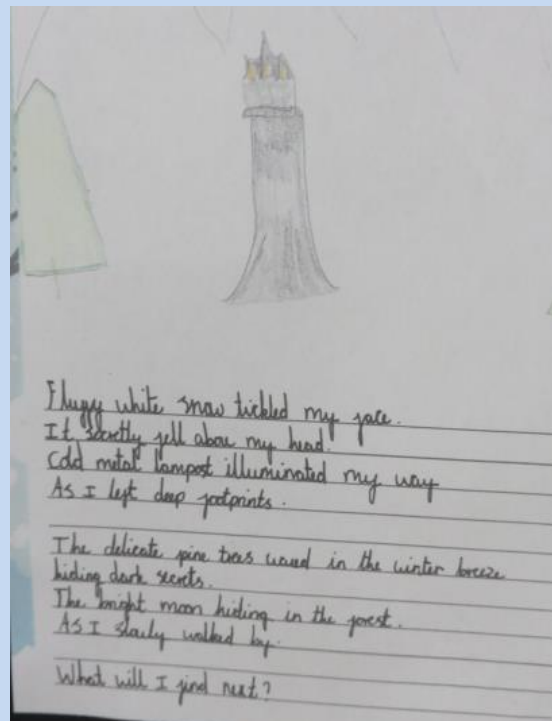 Fluffy white snow tickled my face.
It secretly fell above my head.
Cold metal lampost illuminated my way
As I left deep footprints.
The delicate pine trees waved in the winter breeze
hiding dark secrets.
The bright moon hiding in the forest.
As I slowly walked by.
What will I find next?